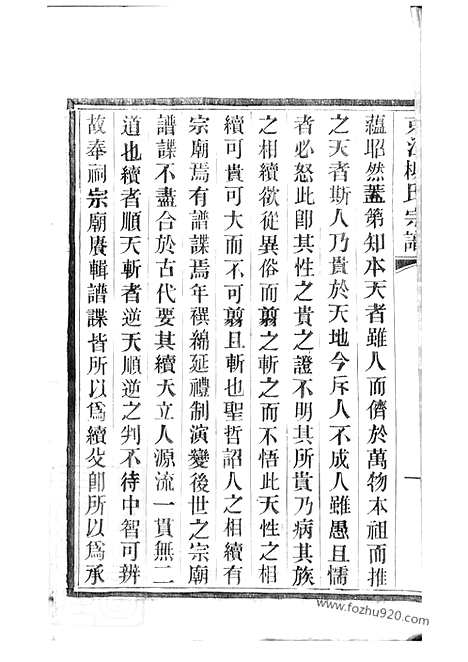 氏宗譜
蘊昭然蓋第知本天者雖人而儕於萬物本祖而推
之天者斯人乃貴於天地今斥人不成人雖愚且懦
者必怒此卽其性之貴之證不明其所貴乃病其族
之相續欲從異俗而翦之斬之而不悟此天性之相
續可貴可大而不可翦且斬也聖哲詔人之相續有
宗廟焉有譜諜焉年禩綿延禮制演變後世之宗廟
譜諜不盡合於古代要其續天立人源流一貫無二
道也續者順天斬者逆天順逆之判不待中智可辨
故奉祠宗廟賡輯譜諜皆所以爲續攴卽所以爲承
一
www.fozhu920.com